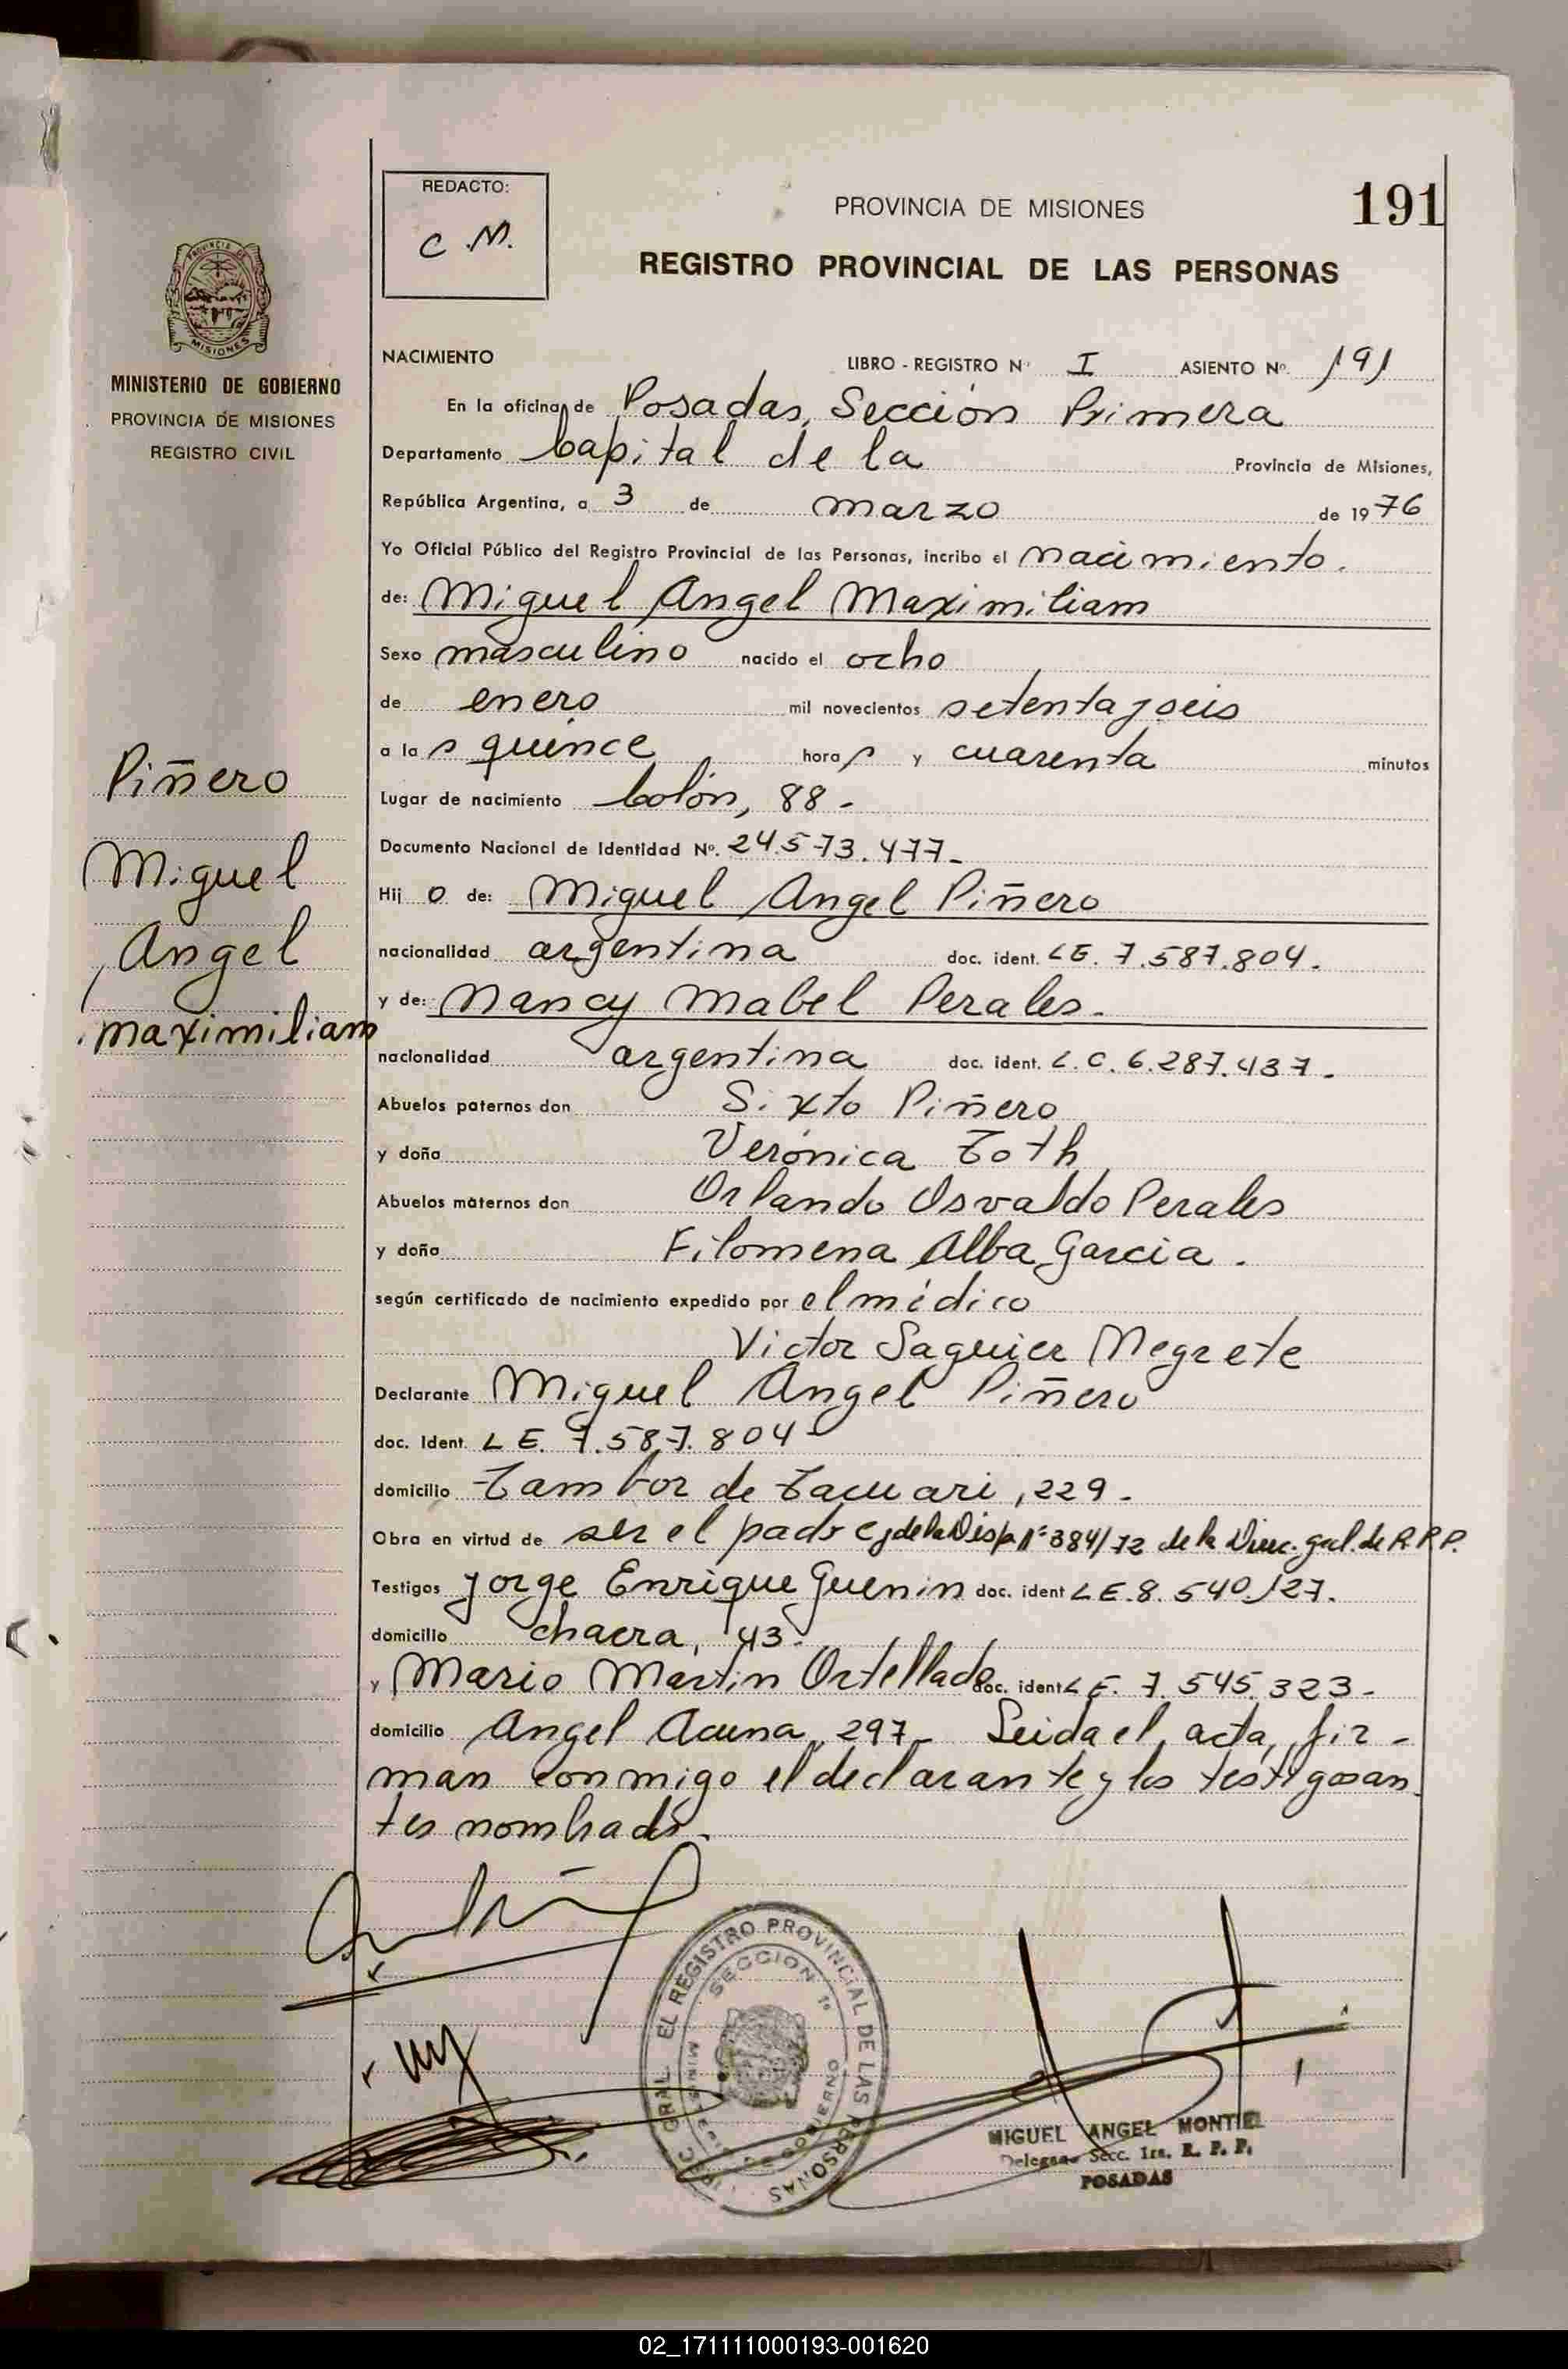 REDACTO:
C.M.
PROVINCIA DE MISIONES
191
REGISTRO PROVINCIAL DE LAS PERSONAS
PROVINCIA DE
MISIONES
MINISTERIO DE GOBIERNO
PROVINCIA DE MISIONES
REGISTRO CIVIL
Piñero
Miguel
Angel
Maximiliam
NACIMIENTO LIBRO - REGISTRO Nº I ASIENTO Nº. 191
En la oficina de Posadas, Sección Primera
Departamento Capital de la Provincia de Misiones,
República Argentina, a 3 de marzo de 1976
Yo Oficial Público del Registro Provincial de las Personas, incribo el nacimiento.
de: Miguel Angel Maximiliam
Sexo masculino nacido el ocho
de enero mil novecientos setenta y seis
a la s quince hora s y cuarenta minutos
Lugar de nacimiento Colón, 88 -
Documento Nacional de Identidad Nº. 24.573.477-
Hij o de: Miguel Angel Piñero
nacionalidad argentina doc. ident. LE. 7.587.804.
y de: Nancy Mabel Perales.
nacionalidad argentina doc. ident. L.C. 6.287.437.
Abuelos paternos don Sixto Piñero
y doña Verónica Toth
Abuelos maternos don Orlando Osvaldo Perales
y doña Filomena Alba Garcia.
según certificado de nacimiento expedido por el médico
Victor Saguier Negrete
Declarante Miguel Angel Piñero
doc. Ident. LE. 7.587.804
domicilio Tambor de Tacuari, 229.
Obra en virtud de ser el padre y de la Disp. Nº 384/72 de la Direc. gral. de R.P.P.
Testigos Jorge Enrique Guenin doc. ident LE. 8.540.127.
domicilio chacra, 43.
y Mario Martin Ortellado doc. ident LE. 7.545.323-
domicilio Angel Acuna, 297- Leida el acta, fir-
man conmigo el declarante y los testigos an
tes nombrado.
DIREC. GRAL. EL REGISTRO PROVINCIAL DE LAS PERSONAS
SECCION 1º
MINISTERIO GOBIERNO
MIGUEL ANGEL MONTIEL
Delegado Secc. 1ra. R. P. P.
POSADAS
02_171111000193-001620